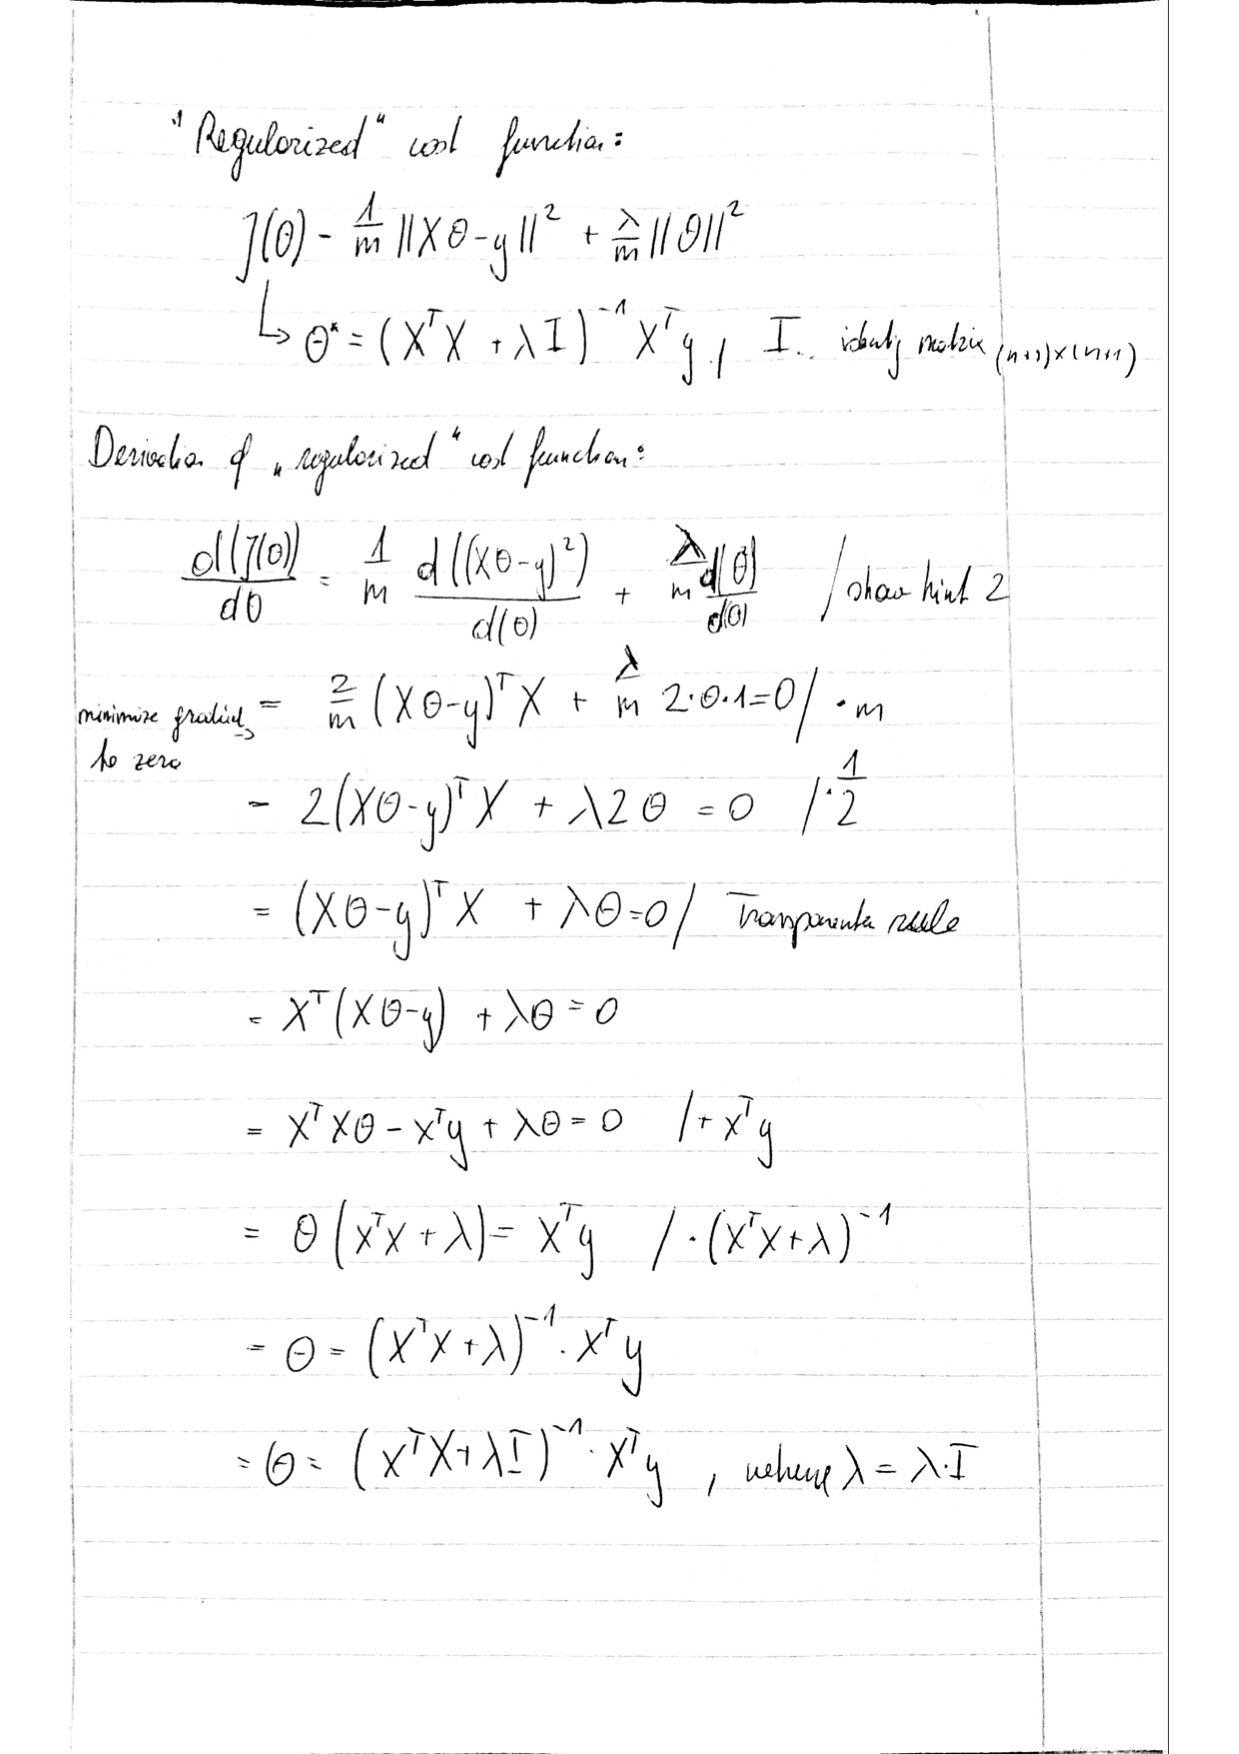 "Regularized" cost function:
J(θ) = 1/m ||Xθ-y||² + λ/m ||θ||²
↳ θ* = (XᵀX + λI)⁻¹ Xᵀy, I.. identity matrix (n+1)x(n+1)
Derivation of "regularized" cost function:
d(J(θ))/dθ = 1/m d((Xθ-y)²)/d(θ) + λ/m d(θ²)/d(θ) / show hint 2
minimize gradient to zero → = 2/m (Xθ-y)ᵀX + λ/m 2·θ·1=0 / ·m
= 2(Xθ-y)ᵀX + λ2θ = 0 /·1/2
= (Xθ-y)ᵀX + λθ=0 / rule
= Xᵀ(Xθ-y) + λθ=0
= XᵀXθ - Xᵀy + λθ = 0 /+Xᵀy
= θ(XᵀX + λ) = Xᵀy / ·(XᵀX+λ)⁻¹
= θ = (XᵀX+λ)⁻¹·Xᵀy
= θ = (XᵀX+λI)⁻¹·Xᵀy, where λ = λ·I